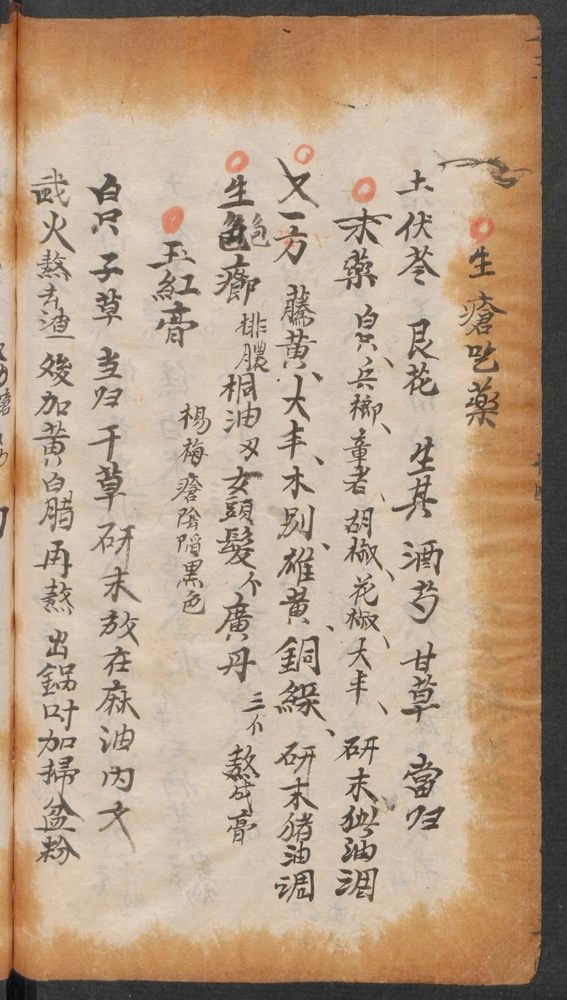 生瘡吃藥
土伏苓 艮花 生芪 酒芍 甘草 當归
末藥 皂只、兵榔、童者、胡椒、花椒、大丰、研末猪油調
又一方 藤黄、大丰、木别、雄黄、銅緑、研末猪油調
生色瘤 排膿 桐油 女頭髮 个 廣丹 三个 熬成膏
玉紅膏 楊梅瘡陰陷黑色
白只 子草 当归 干草 研末放在麻油内文
武火熬去渣 後加黄白腊再熬 出鍋时加掃盆粉